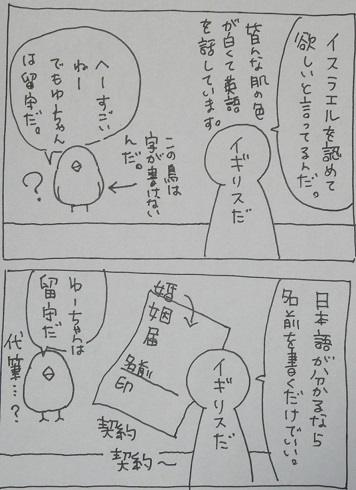 イスラエルを認めて
欲しいと言ってるんだ。
皆んな肌の色
が白くて英語
を話しています。
イギリスだ
へーすごい
ねー
でもゆーちゃん
は留守だ。
この鳥は
字が書けない
んだ。
?
日本語が分かるなら
名前を書くだけでいい。
イギリスだ
婚姻届
名前
印
契約
契約〜
ゆーちゃんは
留守だ
代筆…?